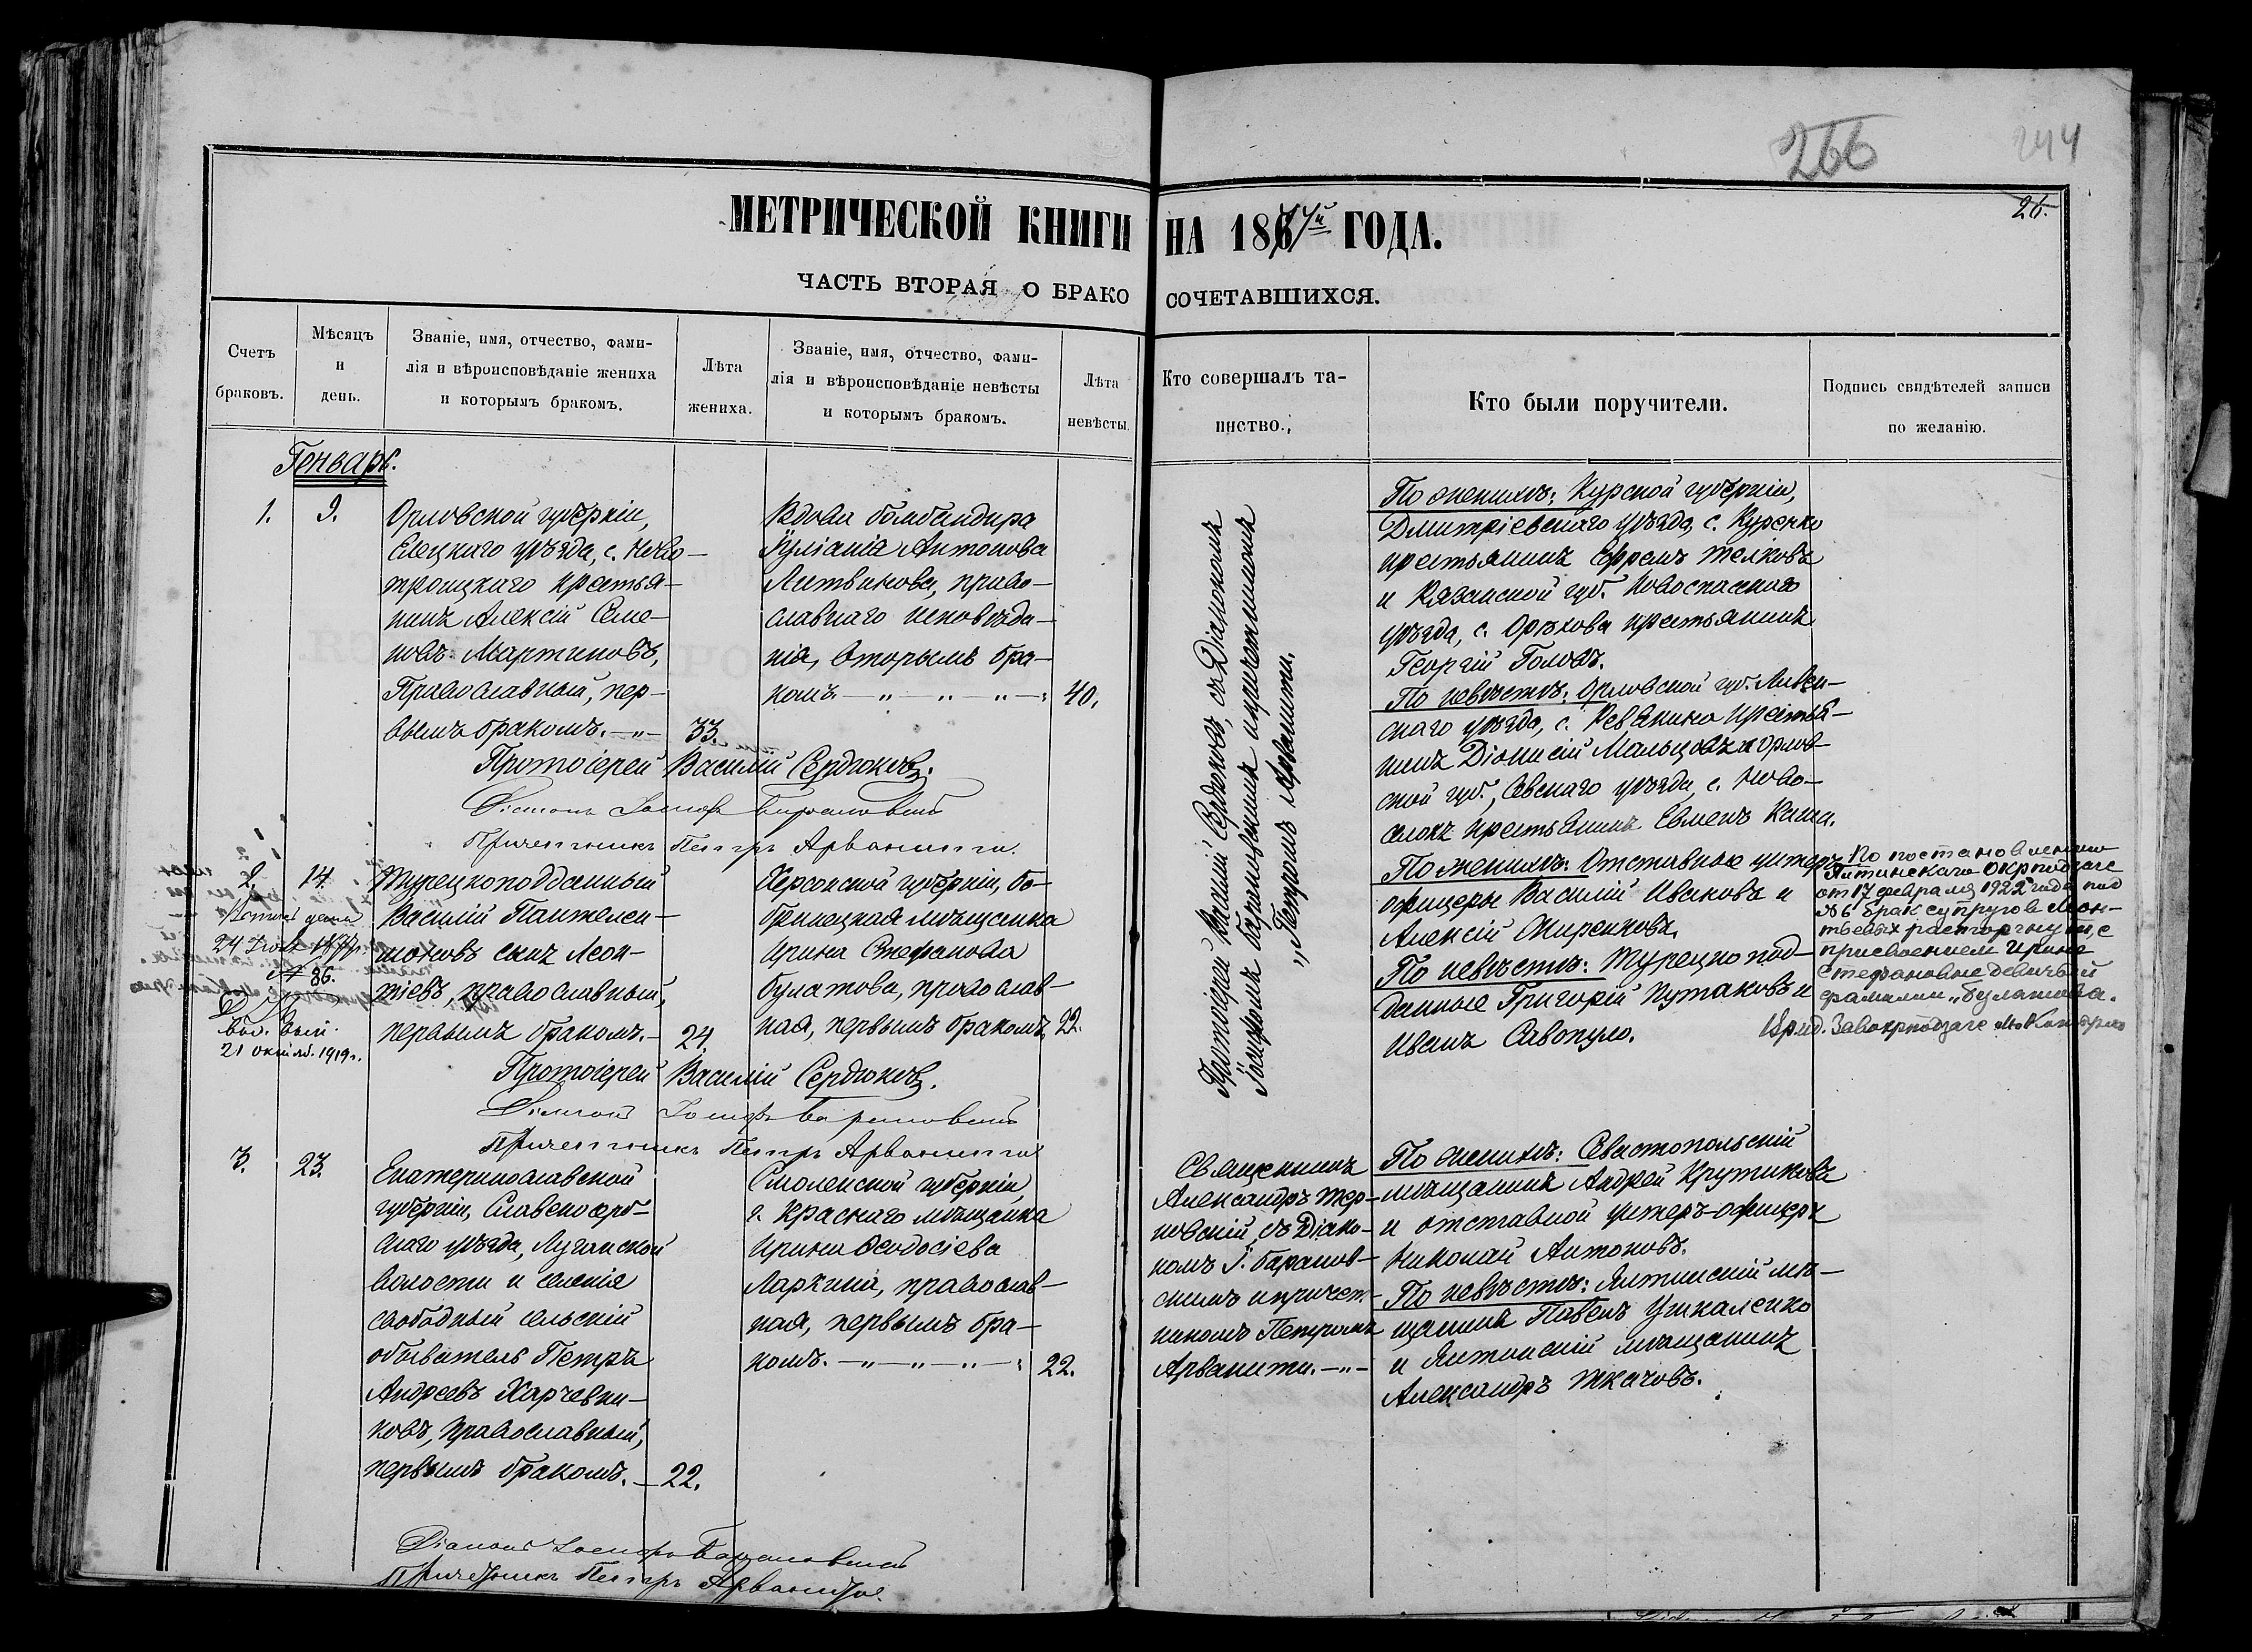 266
244
26.
МЕТРИЧЕСКОЙ КНИГИ НА 1877й ГОДА.
ЧАСТЬ ВТОРАЯ О БРАКОСОЧЕТАВШИХСЯ.
Счетъ
браковъ.
Мѣсяцъ
и
день.
Званіе, имя, отчество, фами-
лія и вѣроисповѣданіе жениха
и которымъ бракомъ.
Лѣта
жениха.
Званіе, имя, отчество, фами-
лія и вѣроисповѣданіе невѣсты
и которымъ бракомъ.
Лѣта
невѣсты.
Кто совершалъ та-
инство.
Кто были поручители.
Подпись свидѣтелей записи
по желанію.
Генварь.
1.
9.
Орловской губерніи,
Елецкаго уѣзда, с. Ново-
троицкаго крестья-
нинъ Алексій Семе-
новъ Мартиновъ,
Православный, пер-
вымъ бракомъ. —„—
33.
Вдова бомбандира
Іуліанія Антонова
Литвинова, право-
славнаго исповѣда-
нія, вторымъ бра-
комъ — „ — „ — „ —
40.
Протоіерей Василій Сердюковъ, съ Діакономъ
Іосифомъ Барановскимъ и причетникомъ
„Петромъ Арванити.
По женихѣ: Курской губерніи,
Дмитріевскаго уѣзда, с.
крестьянинъ Ефремъ
и Рязанской губ.
уѣзда, с. Орѣхова крестьянинъ
Георгій Головъ.
По невѣстѣ: Орловской губ. Ливен-
скаго уѣзда, с. крестья-
нинъ Діонисій Мальцовъ и Орлов-
ской губ., Сѣвскаго уѣзда, с. Ново-
селокъ крестьянинъ
Протоіерей Василій Сердюковъ.
Діаконъ Іосифъ Барановскій
Причетникъ Петръ Арванити.
2.
14.
Турецкоподданный
Василій Пантелеи-
моновъ сынъ Леон-
тіевъ, православный,
первымъ бракомъ. —
24.
Херсонской губерніи, бо-
бринецкая мѣщанка
Ирина Стефанова
Булатова, православ-
ная, первымъ бракомъ.
22.
24 1877г.
№ 86.
21 октяб. 1919г.
По женихѣ: Отставные унтеръ-
офицеры Василій Ивановъ и
Алексій
По невѣстѣ: Турецкопод-
данные Григорій Путаковъ и
Иванъ Савопуло.
По постановлению
Ялтинского Окрподзагс
от 17 февраля 1922 года под
№ 6 брак супругов Леон-
тьевых расторгнут с
присвоением Ирине
Стефановне девичьей
фамилии „Булатова".
Протоіерей Василій Сердюковъ.
Діаконъ Іосифъ Барановскій
Причетникъ Петръ Арванити
3.
23.
Екатеринославской
губерніи, Славеносерб-
скаго уѣзда, Луганской
волости и селенія
свободный сельскій
обыватель Петръ
Андреевъ Харчевни-
ковъ, православный,
первымъ бракомъ. —
22.
Смоленской губерніи,
г. Краснаго мѣщанка
Ирина Ѳеодосіева
Ларкина, православ-
ная, первымъ бра-
комъ. —„—„—„—
22.
Священникъ
Александръ Тер-
новскій, съ Діако-
номъ І. Баранов-
скимъ и причет-
никомъ Петромъ
Арванити. —„—
По женихѣ: Севастопольскій
мѣщанинъ Андрей Крутиковъ
и отставной унтеръ-офицеръ
Николай Антоновъ.
По невѣстѣ: Ялтинскій мѣ-
щанинъ Павелъ Ушкаленко
и Ялтинскій мѣщанинъ
Александръ Ткачовъ.
Діаконъ Іосифъ Барановскій
Причетникъ Петръ Арванити.